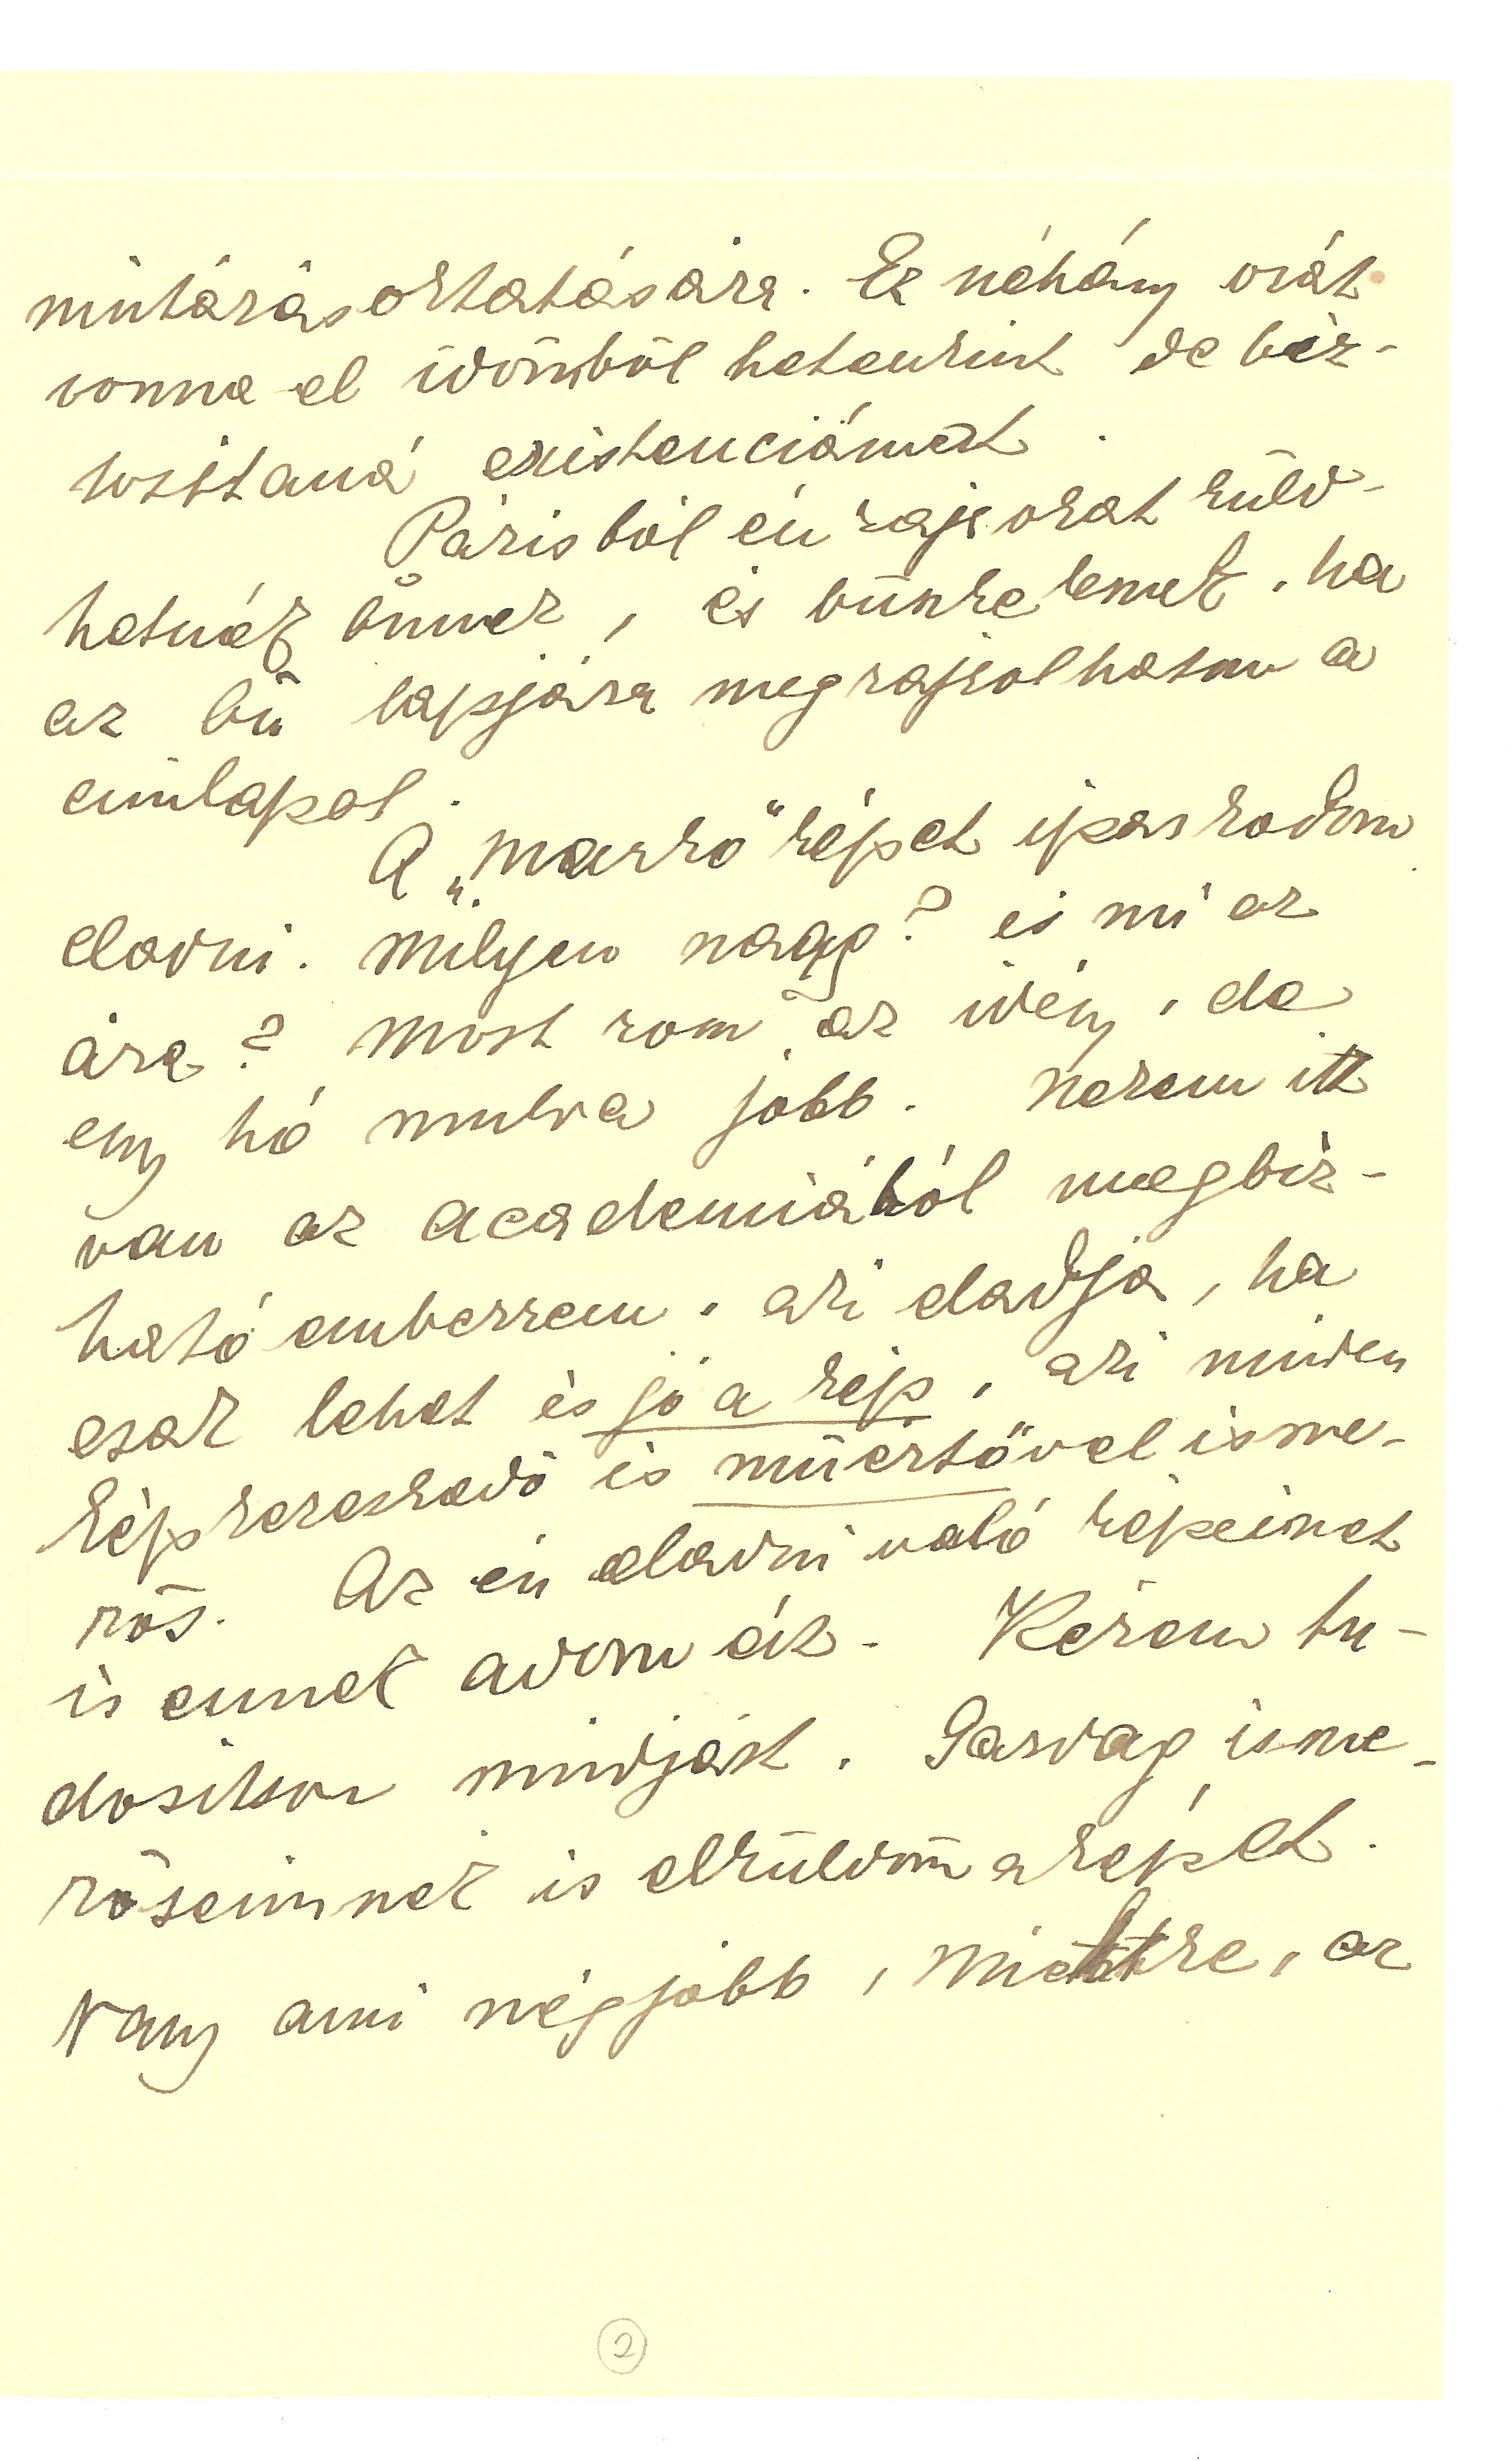 mintázás oktatására. Ez néhány órát
vonna el időmből hetenkint de biz-
tosítaná existenciámat.
Párisból én rajzokat küld-
hetnék önnek, és büszke lennék, ha
az ön lapjára megrajzolhatnám a
cimlapot.
A „Markó" képet iparkodom
eladni. Milyen nagy? és mi az
ára? Most rossz az idény, de
egy hó mulva jobb. Nekem itt
van az academiából megbiz-
ható emberem, aki eladja, ha
csak lehet és jó a kép, aki minden
képkereskedő és műértővel isme-
rős. Az én eladni való képeimet
is ennek adom át. Kérem tu-
dosítson mindjárt. Gazdag isme-
rőseimnek is elküldöm a képet.
Vagy ami még jobb, az
②